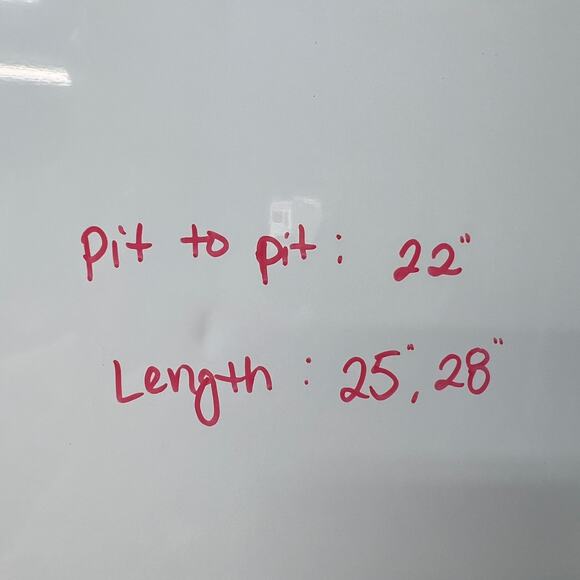 Pit to pit: 22"
Length: 25", 28"